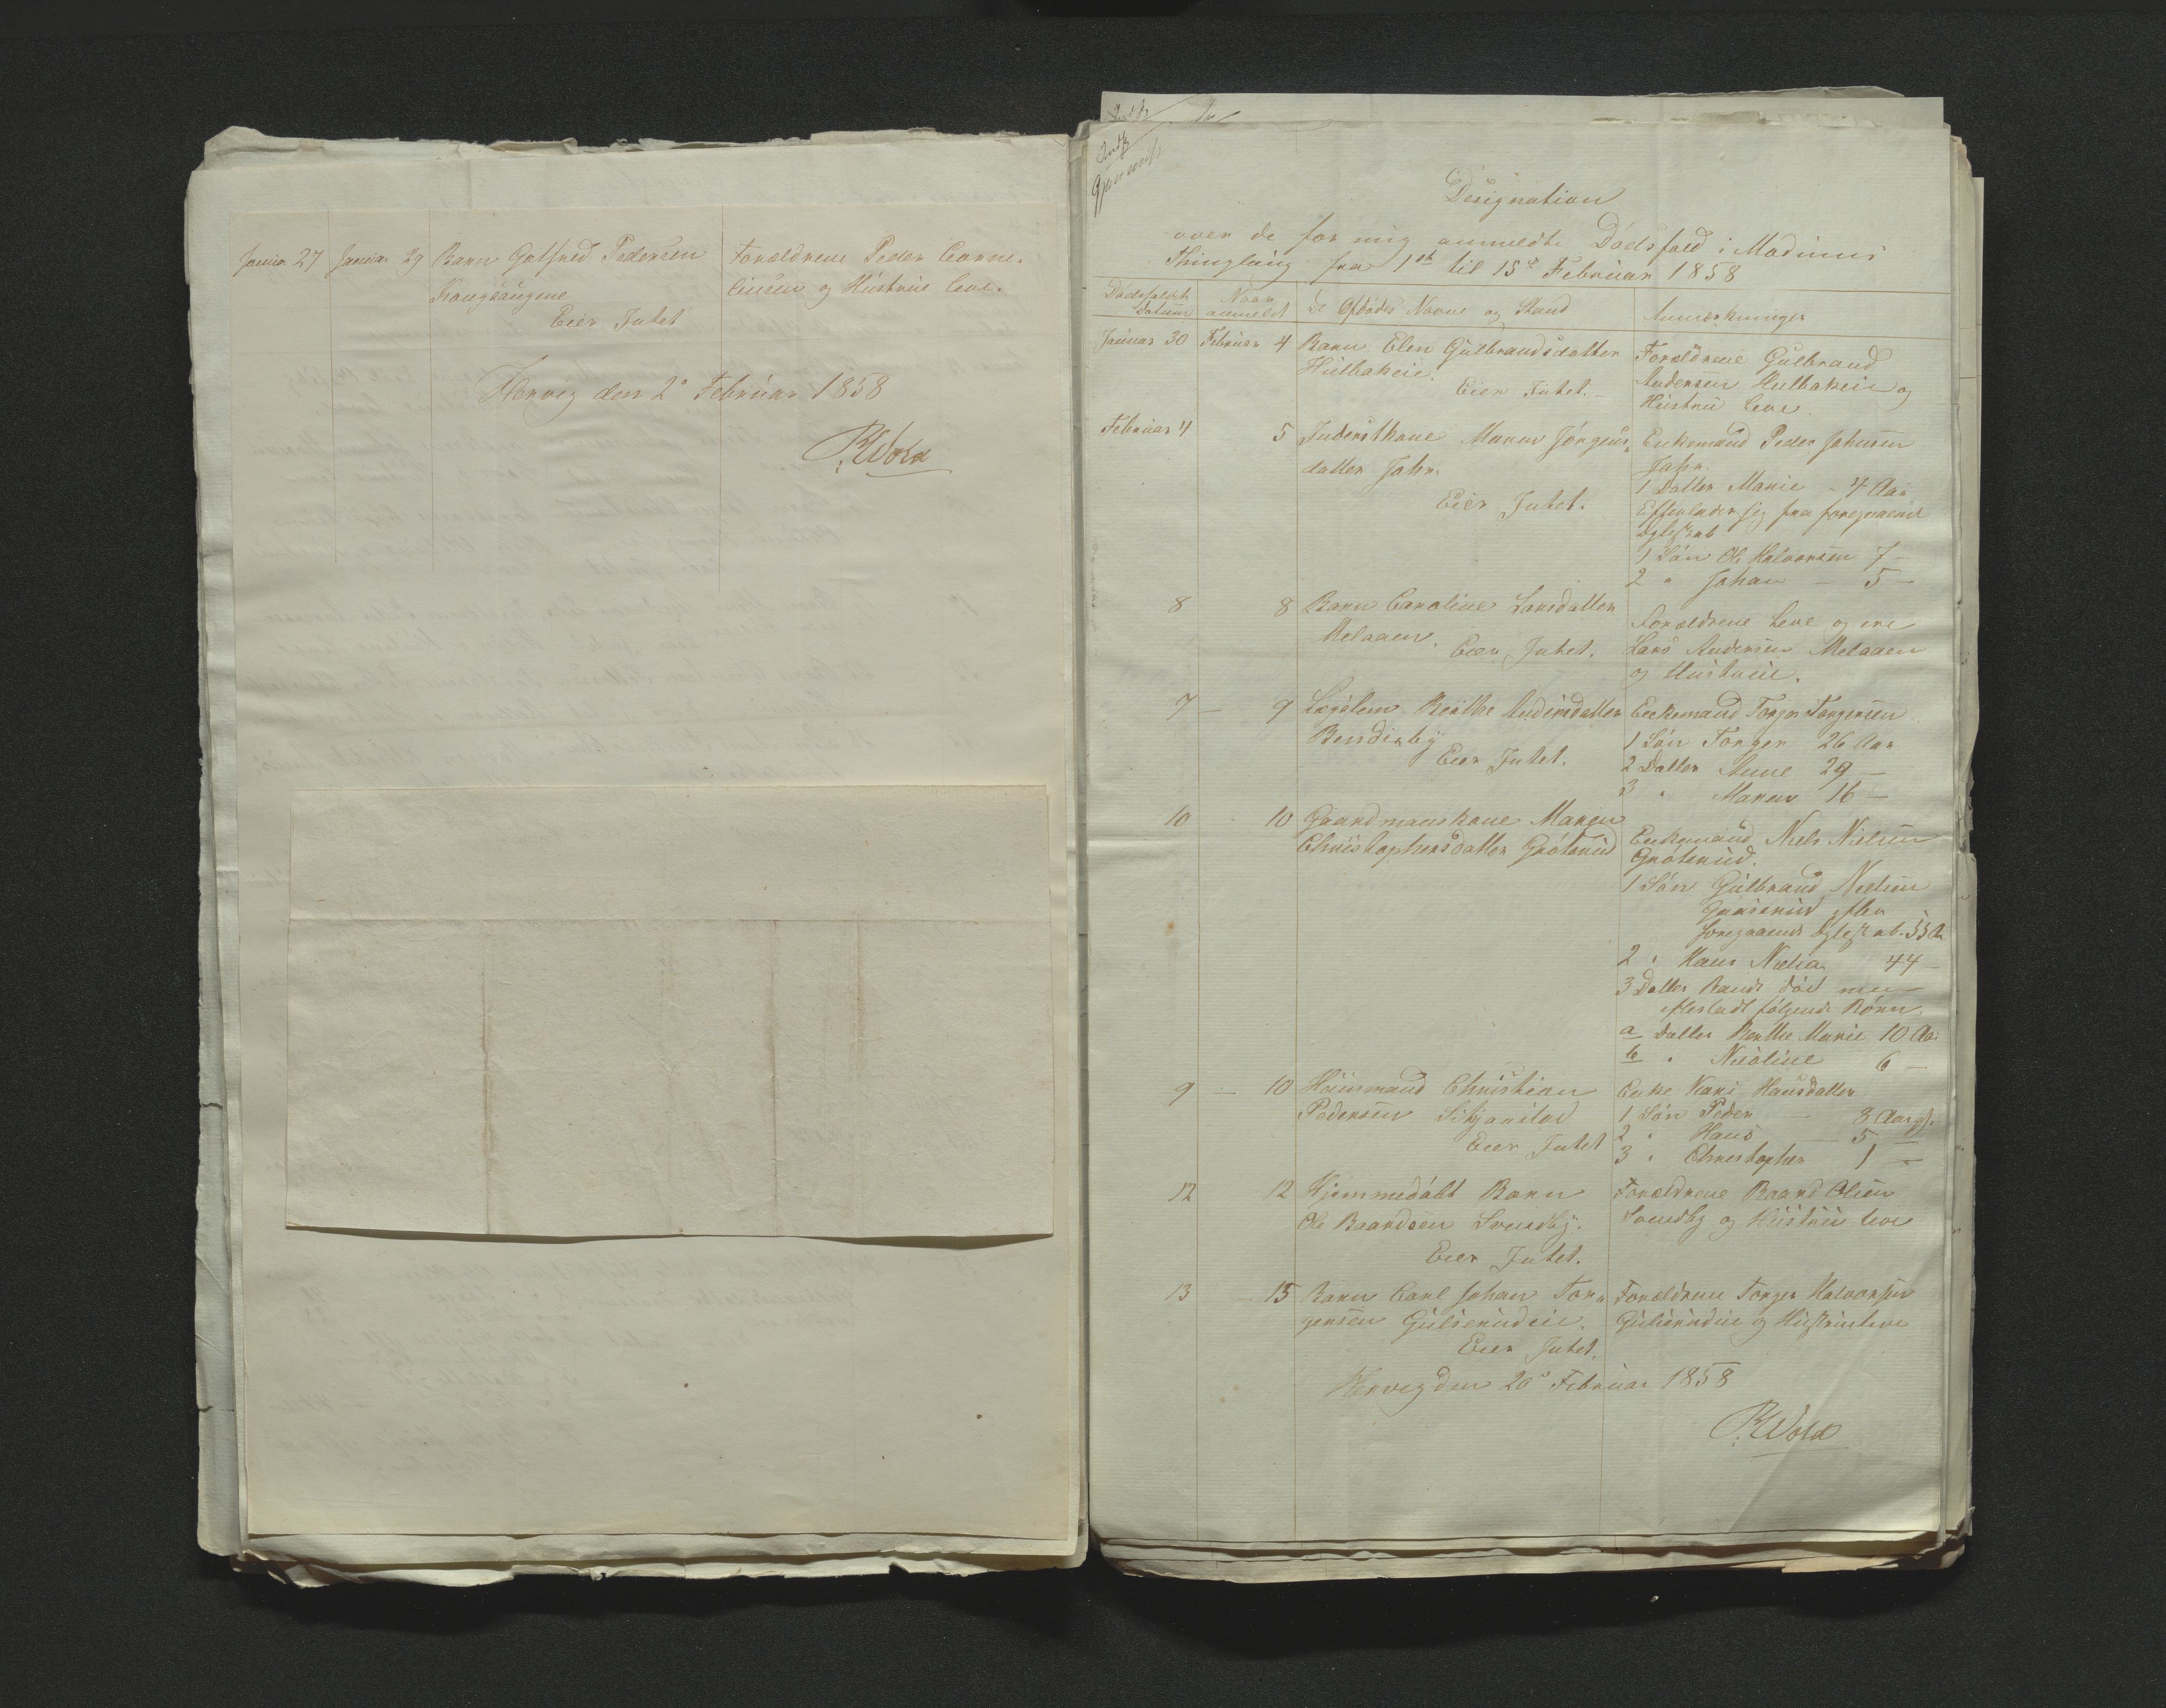 Januar 27 Januar 29 Barn Gotfred Pedersen
Kongssaugene
Eier Intet
Forældrene Peder Corne-
liusen og Hustrue leve.
den 2den Februar 1858
RWold
Designation
over de for mig anmeldte Dødsfald i Modums
Thinglaug fra 1ste til 15de Februar 1858
Dødsfaldets Datum
Naar anmeldt
De Afdødes Navne og Stand
Anmærkninger
Januar 30 Februar 4 Barn Elen Gulbrandsdatter
Hulbakeie.
Eier Intet.
Forældrene Gulbrand
Andersen Hulbakeie og
Hustru leve.
Februar 4 5 Inderstkone Maren Jørgens-
datter Jahr.
Eier Intet.
Enkemand Peder Johnsen
Jahr.
1 Datter Marie - 4 Aar
Efterlader sig fra foregaaende
Egteskab
1 Søn Ole Halvorsen 7 -
2 " Johan - 5 -
8 8 Barn Caroline Larsdatter
Melaaen.
Eier Intet.
Forældrene leve og ere
Lars Andersen Melaaen
og Hustrue.
7 - 9 Lægslem Berthe Andersdatter
Bendixby
Eier Intet.
Enkemand Torger Torgersen
1 Søn Torger 26 Aar
2 Datter Anne 29 -
3 " Maren 16 -
10 10 Gaardmandskone Maren
Christophersdatter Grøterud
Enkemand Niels Nielsen
Grøterud.
1 Søn Gulbrand Nielsen
efter
foregaaende Egteskab. 55 A
2 " Hans Nielsen 44 -
3 Datter Randi død men
efterladt følgende Børn
a Datter Berthe Marie 10 Aar
b " Nicoline 6 -
9 - 10 Huusmand Christian
Pedersen
Eier Intet
Enke Kari Hansdatter
1 Søn Peder - 8 Aar gl.
2 " Hans - 5 -
3 " Christopher 1 -
12 12 Hjemmedøbt Barn
Ole Baardsen Svendby.
Eier Intet.
Forældrene Baard Olsen
Svendby og Hustrue leve
13 - 15 Barn Carl Johan Tor-
gersen Gulserudeie.
Eier Intet.
Forældrene Torger Halvorsen
Gulserudeie og Hustrue leve
den 20de Februar 1858
RWold